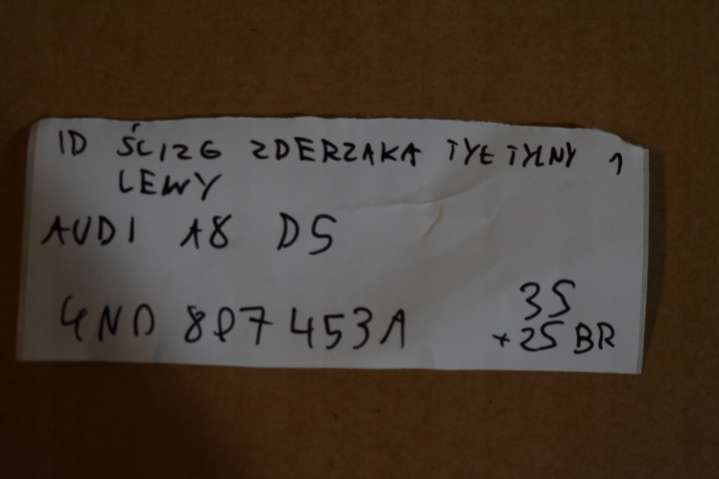 ID ŚLIZG ZDERZAKA TYŁ TYLNY 1
LEWY
AUDI A8 D5
4N0 807 453A
35
+25 BR